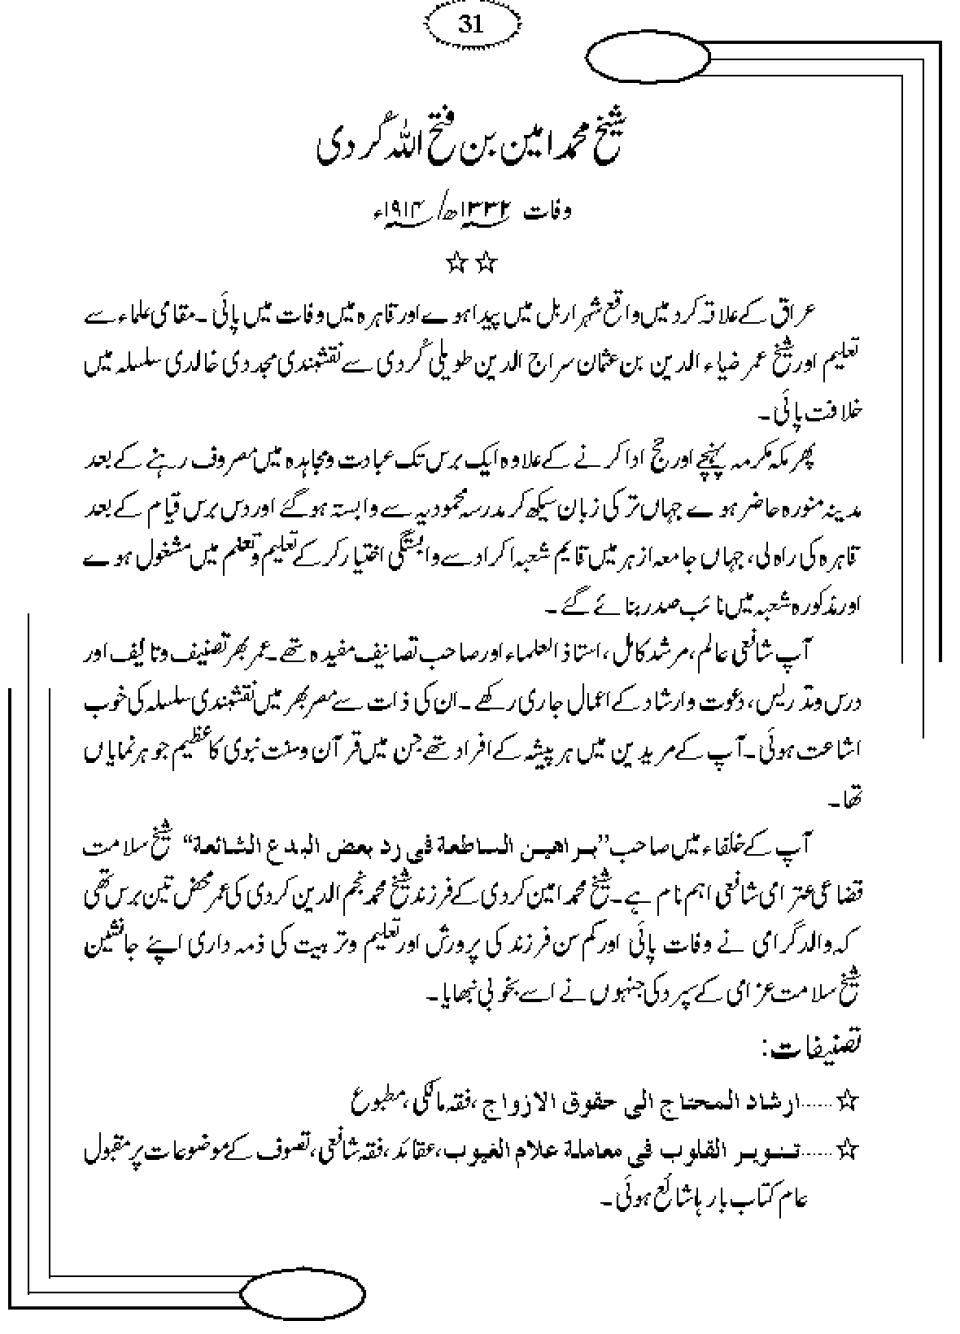 31
شیخ محمد امین بن فتح اللہ کُردی
وفات ۱۳۳۲ھ/۱۹۱۴ء
☆☆
عراق کے علاقہ کرد میں واقع شہر اربل میں پیدا ہوے اور قاہرہ میں وفات میں پائی۔ مقامی علماء سے
تعلیم اور شیخ عمر ضیاء الدین بن عثمان سراج الدین طویلی کُردی سے نقشبندی مجددی خالدی سلسلہ میں
خلافت پائی۔
پھر مکہ مکرمہ پہنچے اور حج ادا کرنے کے علاوہ ایک برس تک عبادت ومجاہدہ میں مصروف رہنے کے بعد
مدینہ منورہ حاضر ہوے جہاں ترکی زبان سیکھ کر مدرسہ محمودیہ سے وابستہ ہو گئے اور دس برس قیام کے بعد
قاہرہ کی راہ لی، جہاں جامعہ ازہر میں قایم شعبہ اکراد سے وابستگی اختیار کر کے تعلیم وتعلم میں مشغول ہوے
اور مذکورہ شعبہ میں نائب صدر بنائے گئے۔
آپ شافعی عالم، مرشد کامل، استاذ العلماء اور صاحب تصانیف مفیدہ تھے۔ عمر بھر تصنیف وتالیف اور
درس وتدریس، دعوت وارشاد کے اعمال جاری رکھے۔ ان کی ذات سے مصر بھر میں نقشبندی سلسلہ کی خوب
اشاعت ہوئی۔ آپ کے مریدین میں ہر پیشہ کے افراد تھے جن میں قرآن وسنت نبوی کا عظیم جوہر نمایاں
تھا۔
آپ کے خلفاء میں صاحب ”براھین الساطعة فی رد بعض البدع الشائعة“ شیخ سلامت
قضاعی عزامی شافعی اہم نام ہے۔ شیخ محمد امین کردی کے فرزند شیخ محمد نجم الدین کردی کی عمر محض تین برس تھی
کہ والد گرامی نے وفات پائی اور کم سن فرزند کی پرورش اور تعلیم وتربیت کی ذمہ داری اپنے جانشین
شیخ سلامت عزامی کے سپرد کی جنہوں نے اسے بخوبی نبھایا۔
تصنیفات:
☆......ارشاد المحتاج الی حقوق الازواج، فقہ مالکی، مطبوع
☆......تنویر القلوب فی معاملة علام الغیوب، عقائد، فقہ شافعی، تصوف کے موضوعات پر مقبول
عام کتاب بارہا شائع ہوئی۔